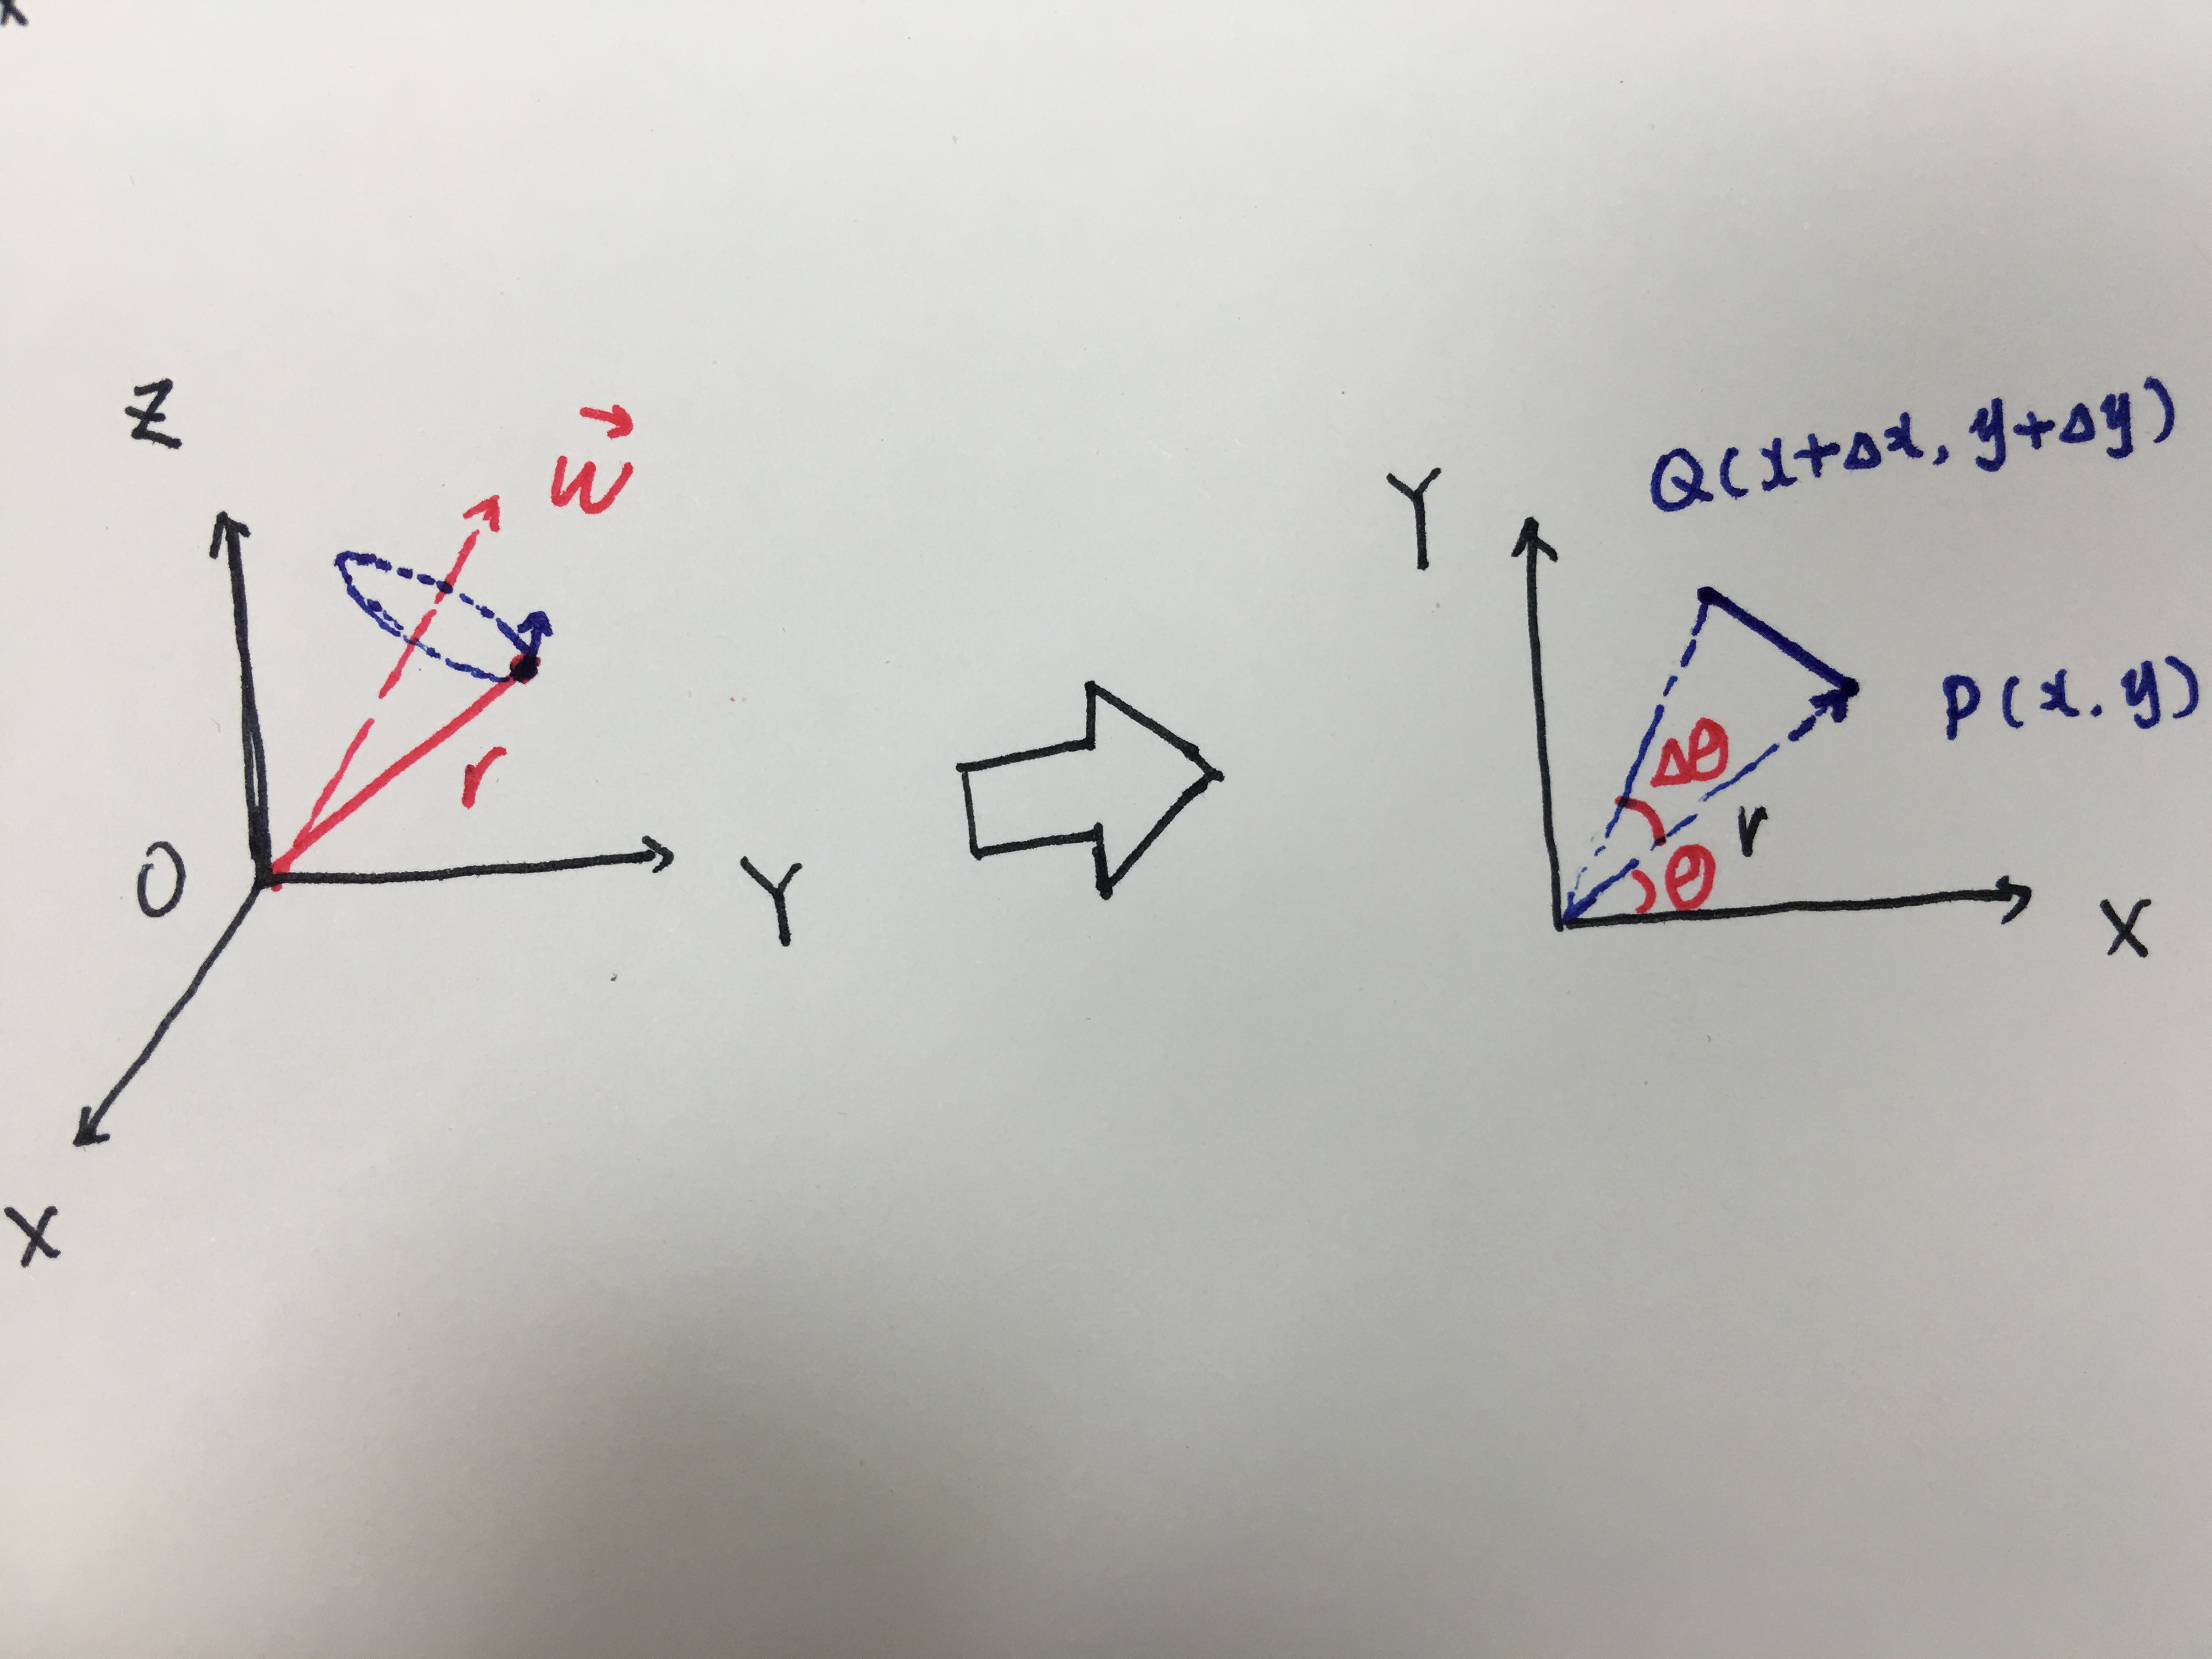 Z
w⃗
r
O
Y
X
Y
Q(x+Δx, y+Δy)
P(x.y)
Δθ
r
θ
X